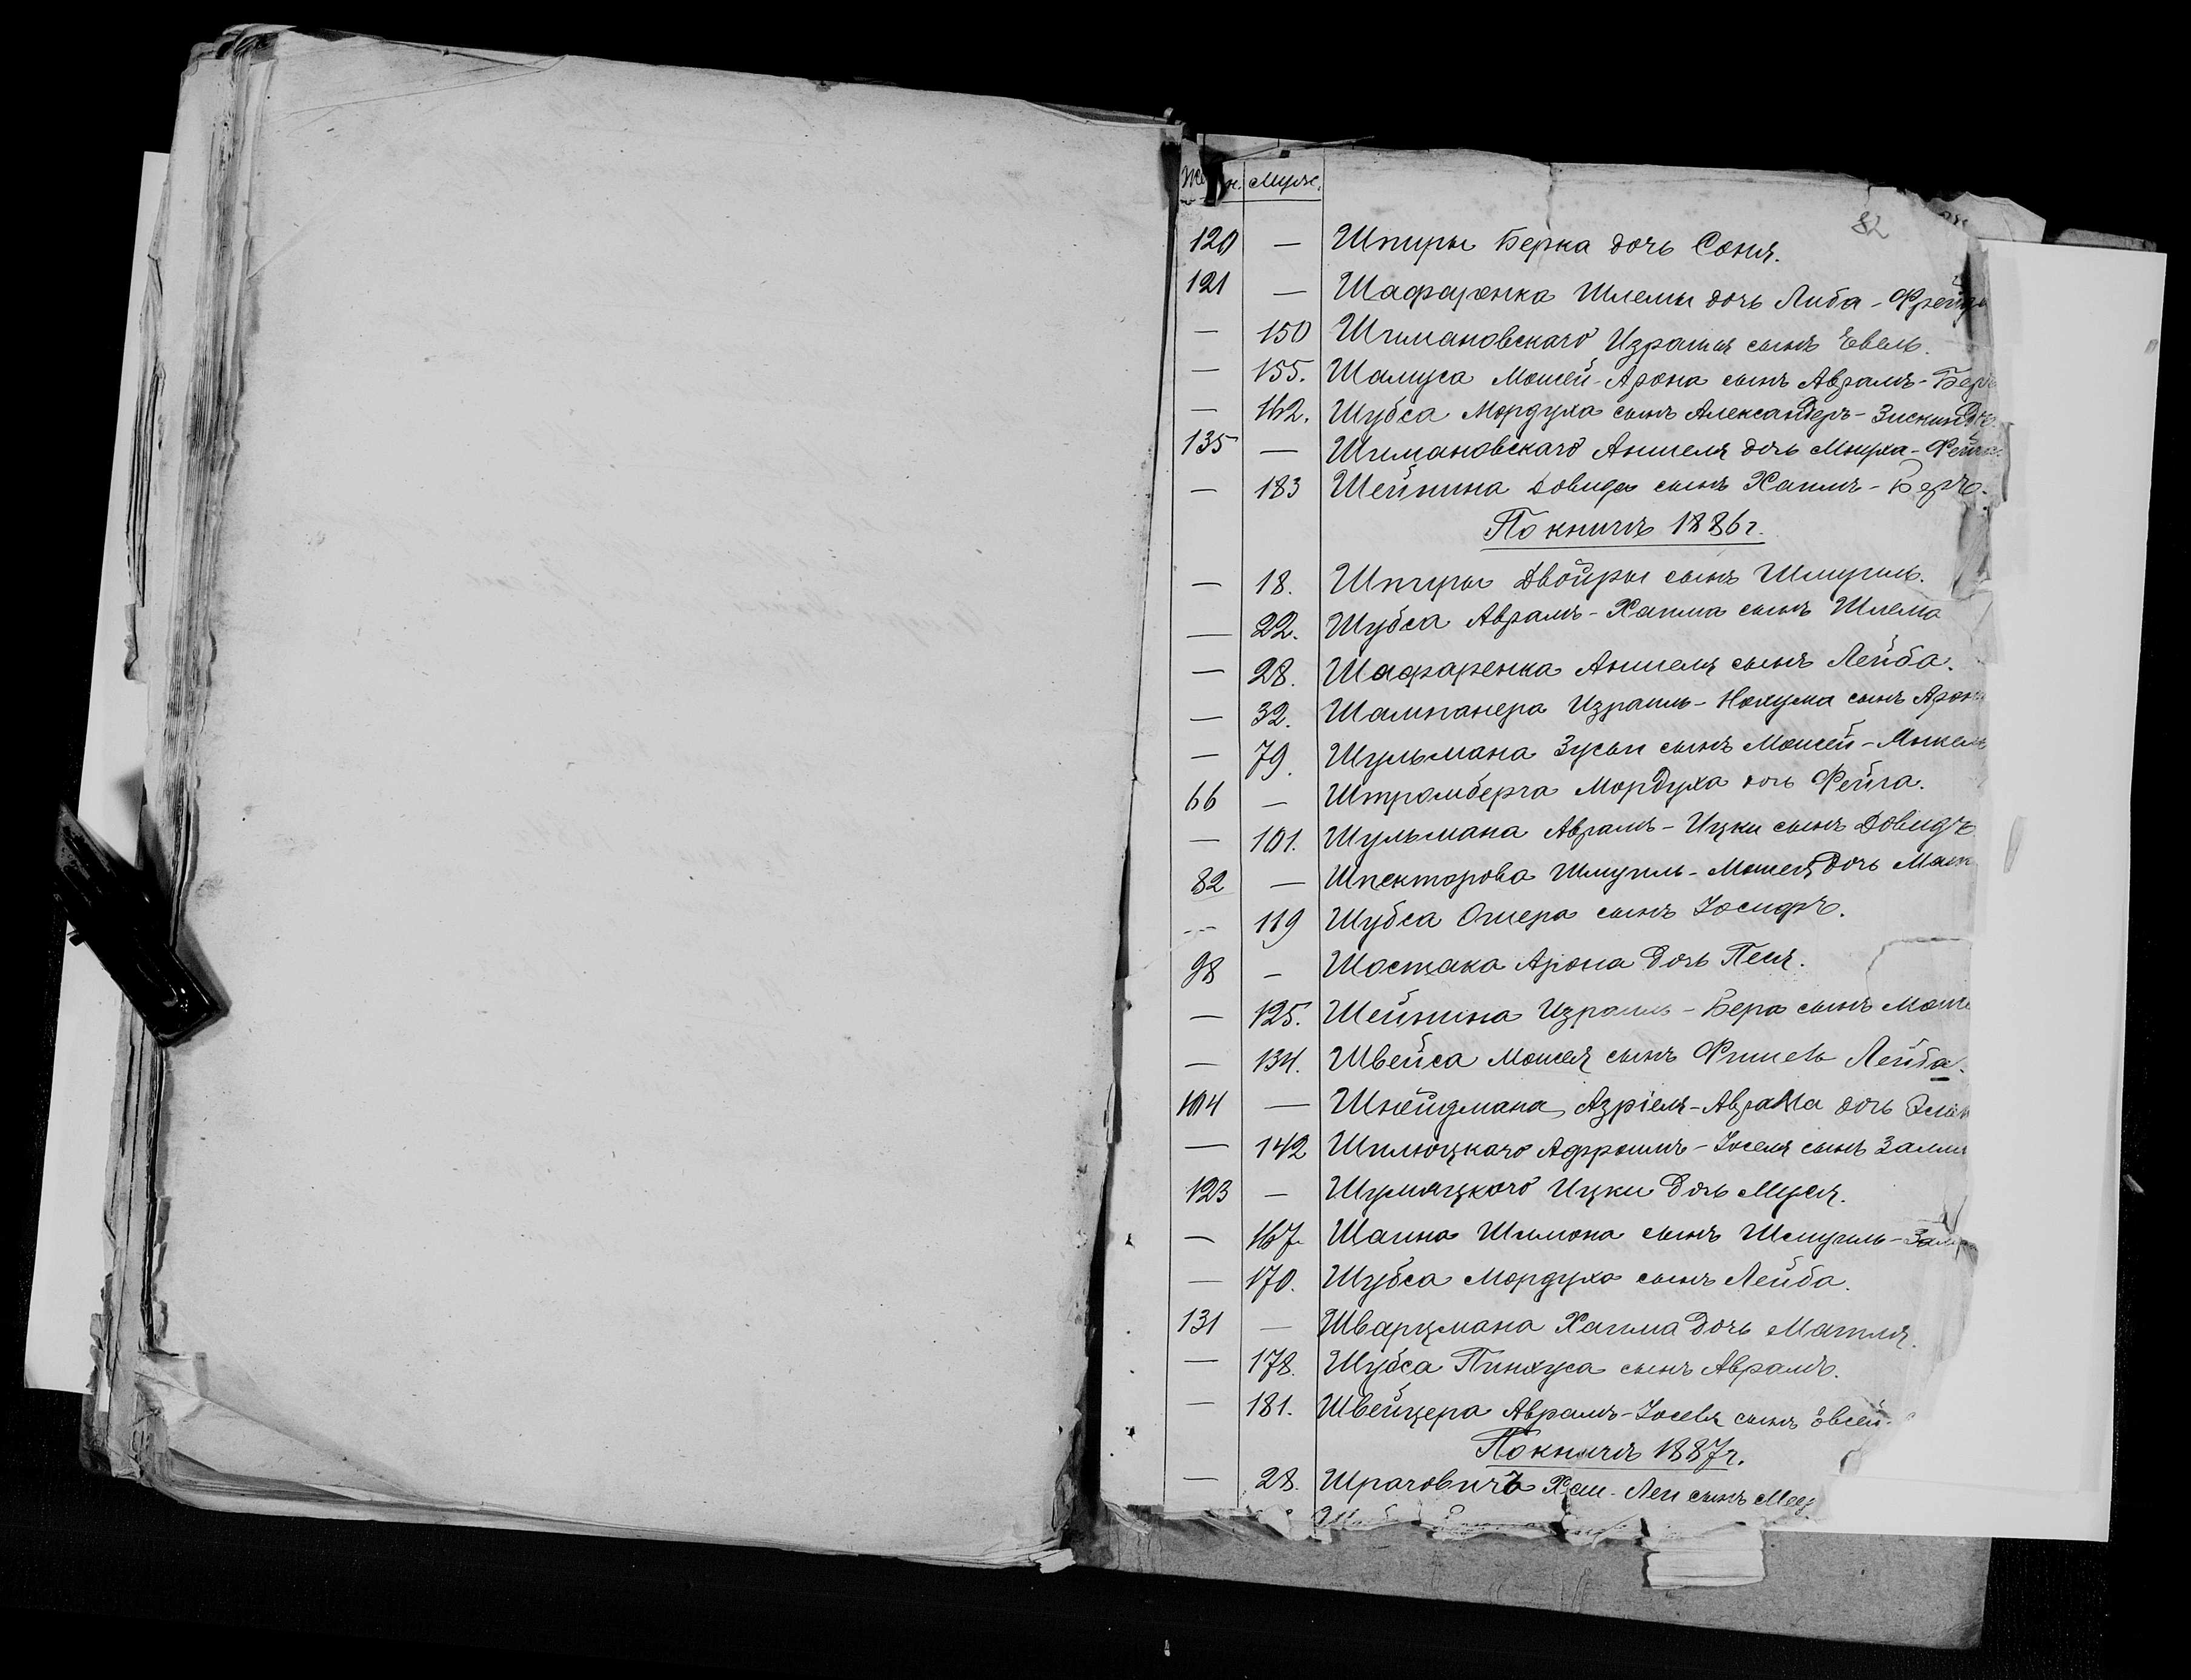 Муж.
82
120 — Шпиры Берка дочь Соня.
121 — Шафаренка Шлемы дочь Либа-
— 150 Шимановскаго Израиля сынъ Евель.
— 155. Шамуса Мошей-Арона сынъ Аврамъ-
— 162. Шубса Мордуха сынъ Александеръ-Зискиндъ.
135 — Шимановскаго Аншеля дочь Мнуха-
— 183 Шейнина Довида сынъ Хаимъ-Беръ.
По книгѣ 1886 г.
— 18. Шпиры Двойры сынъ Шмуиль.
— 22. Шубса Аврамъ-Хаима сынъ Шлема
— 28. Шафаренка Аншеля сынъ Лейба.
— 32. Шампанера Израиль-Нохума сынъ
— 79. Шульмана Зусы сынъ Мошей-
66 — Штромберга Мордуха дочь Фейга.
— 101. Шульмана Аврамъ-Ицки сынъ Довидъ
82 — Шпекторова Шмуиль-Мошея дочь
— 119 Шубса Ошера сынъ Іосифъ.
98 — Шостака Арона дочь Песя.
— 125. Шейнина Израиль-Бера сынъ
— 134. Швейса Мошея сынъ Фишель Лейба.
104 — Шнейдмана Азріель-Аврама дочь
— 142 Шклюцкаго Афроимъ-Іоселя сынъ
123 — Шумяцкаго Ицки дочь Муся.
— 167. Шаина Шимона сынъ Шмуиль-
— 170. Шубса Мордуха сынъ Лейба.
131 — Шварцмана Хаима дочь Матля.
— 178. Шубса Пинхуса сынъ Аврамъ.
— 181. Швейцера Аврамъ-Іоселя сынъ Овсей-
По книгѣ 1887 г.
— 28. сынъ